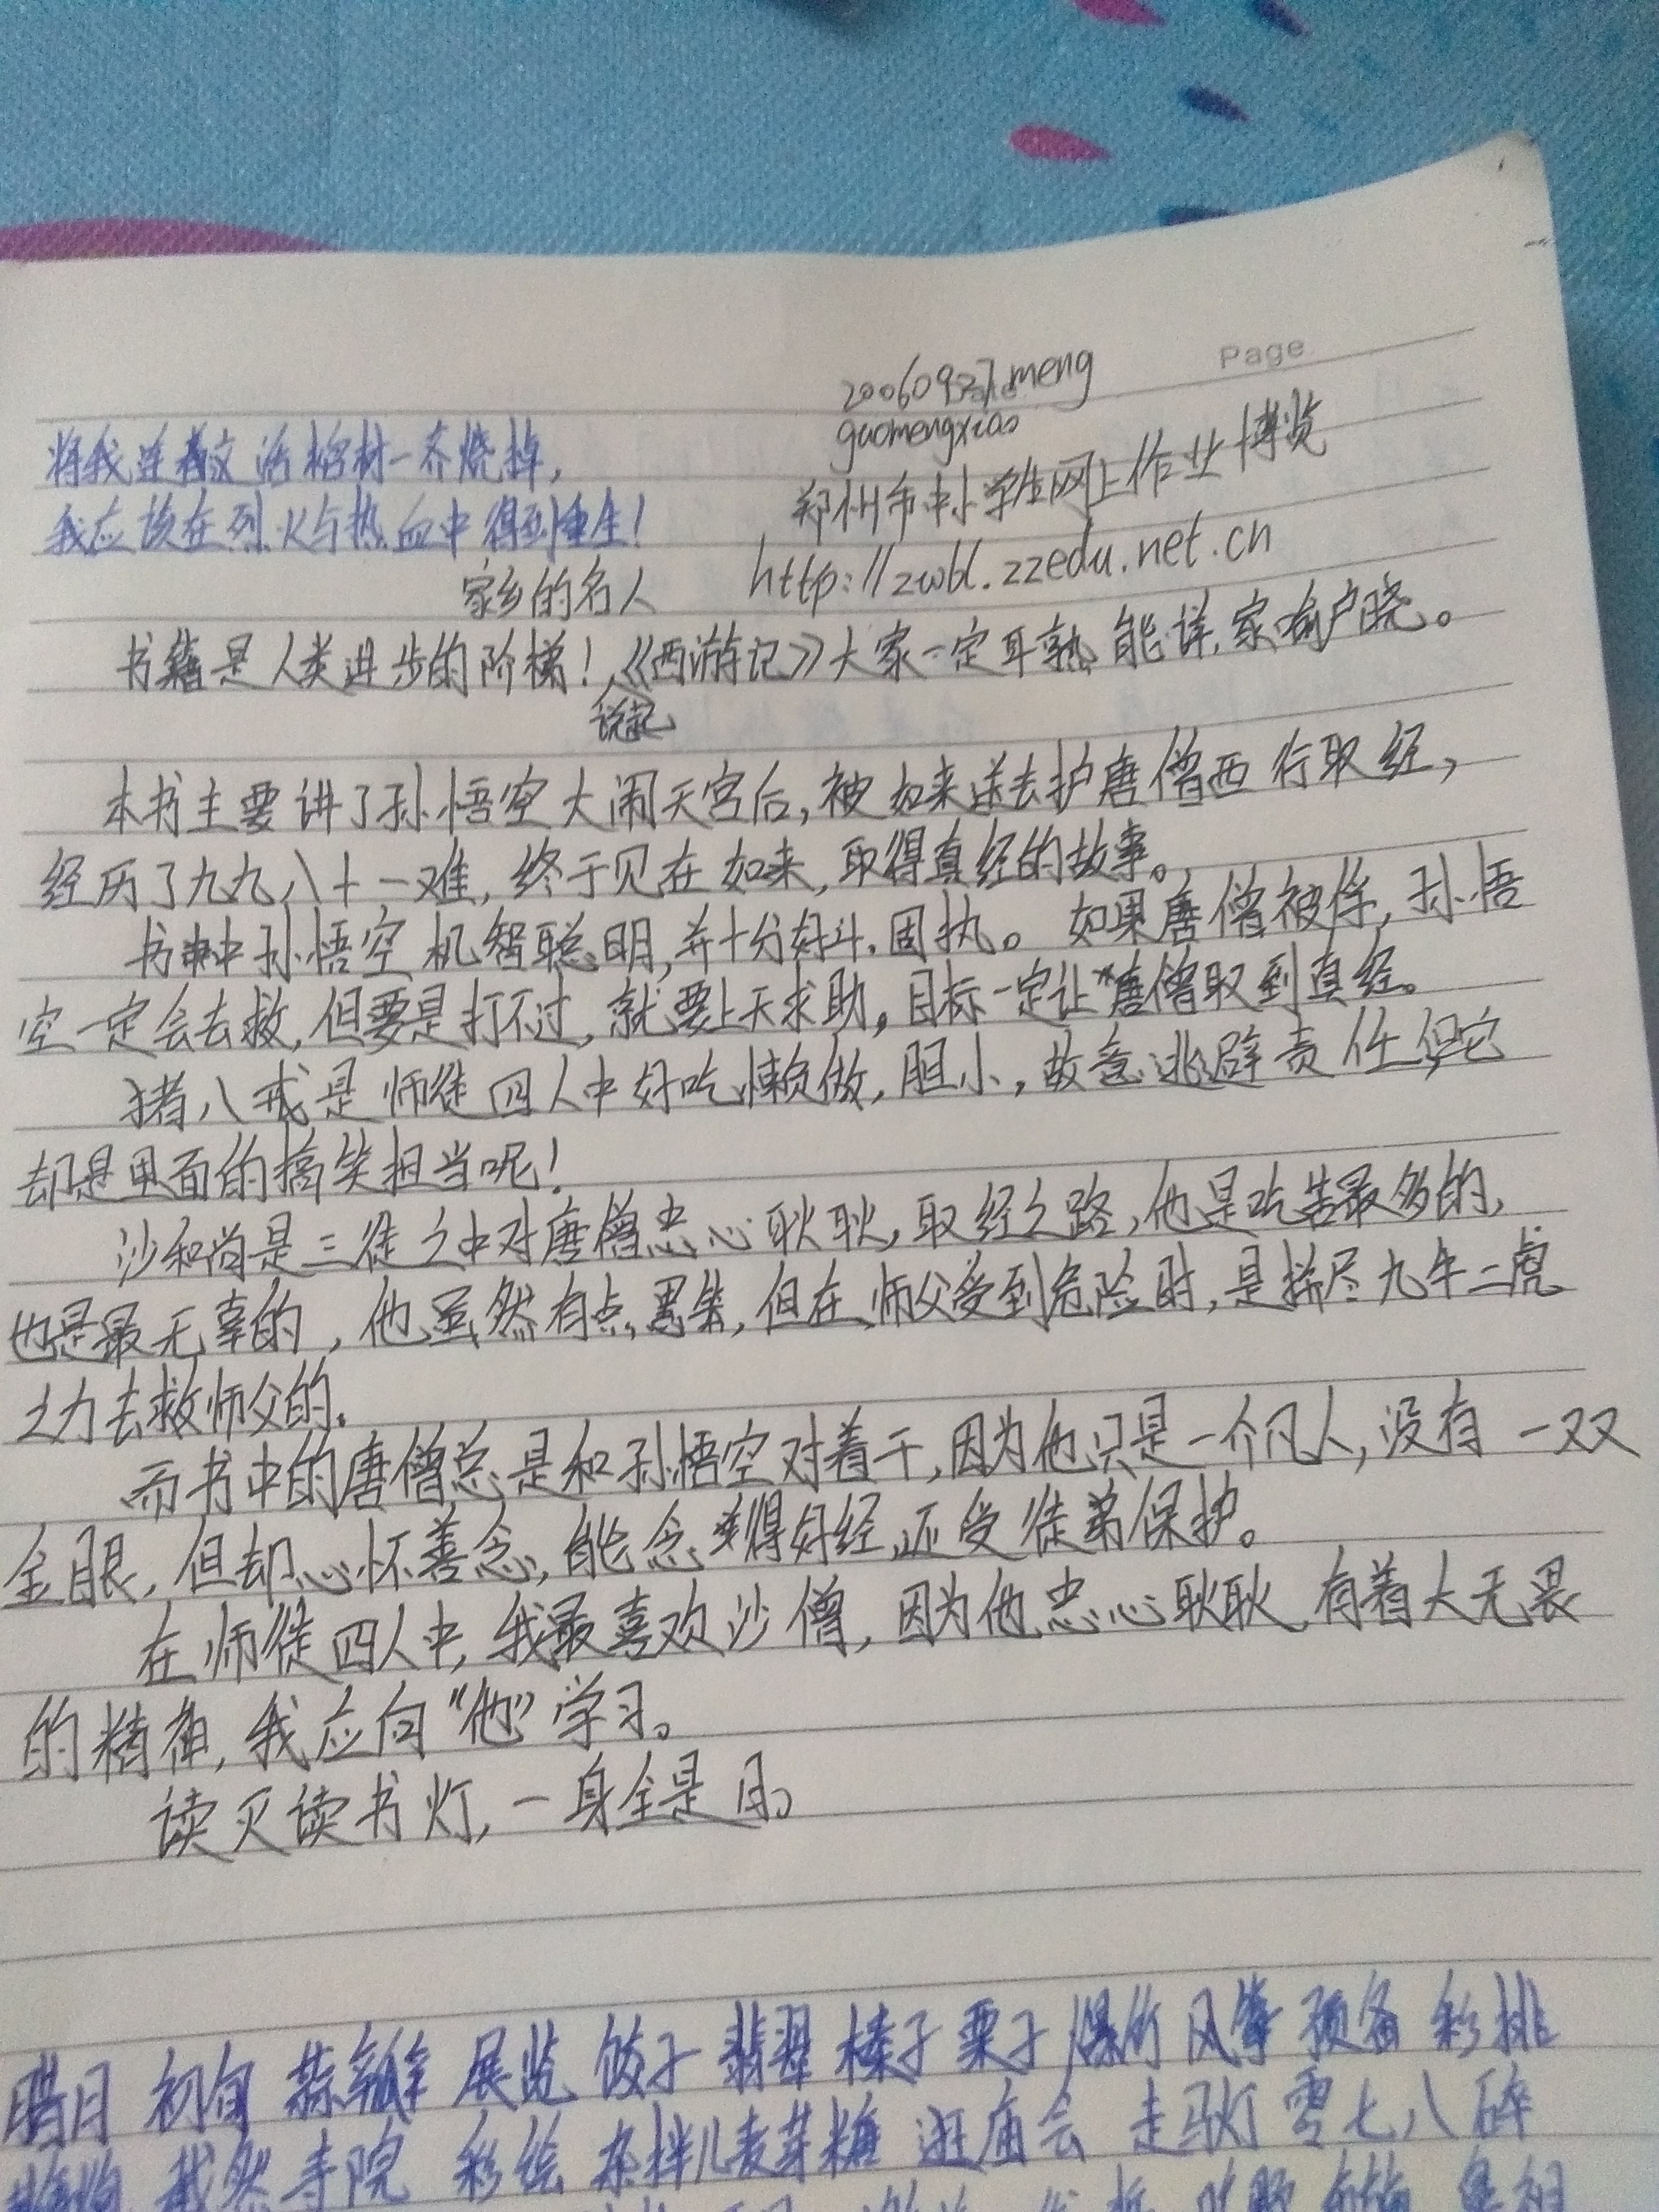 Page
2006092 meng
guomengxiao
将我连着 活棺材一齐烧掉,
郑州市中小学生网上作业博览
我应该在烈火与热血中得到重生!
http://zwbl.zzedu.net.cn
家乡的名人
书籍是人类进步的阶梯!说起《西游记》大家一定耳熟能详,家喻户晓。
本书主要讲了孙悟空大闹天宫后,被如来送去护唐僧西行取经,
经历了九九八十一难,终于见在如来,取得真经的故事。
书中孙悟空机智聪明,并十分好斗,固执。如果唐僧被俘,孙悟
空一定会去救,但要是打不过,就要上天求助,目标一定让唐僧取到真经。
猪八戒是师徒四人中好吃懒做,胆小,故意逃避责任,但它
却是里面的搞笑担当呢!
沙和尚是三徒之中对唐僧忠心耿耿,取经之路,他是吃苦最多的,
也是最无辜的,他虽然有点愚笨,但在师父受到危险时,是拼尽九牛二虎
之力去救师父的。
而书中的唐僧总是和孙悟空对着干,因为他只是一个凡人,没有一双
金眼,但却心怀善念,能念得好经,还受徒弟保护。
在师徒四人中,我最喜欢沙僧,因为他忠心耿耿,有着大无畏
的精神,我应向“他”学习。
读灭读书灯,一身全是月。
腊日 初旬 蒜瓣 展览 饺子 翡翠 榛子 栗子 爆竹 风筝 预备 彩排
截然 寺院 彩绘 杂拌儿 麦芽糖 逛庙会 走马灯 零七八碎